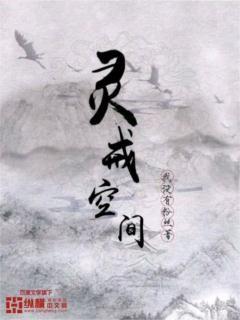 灵戒空间
我没有粉丝著
百度文学旗下
纵横
中文网
www.zongheng.com